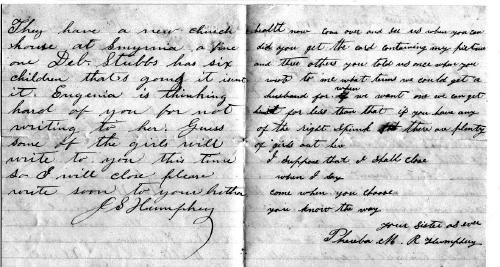 They have a new church
house at Smyrnia a fine
one Deb. Stubbs has six
children that's going it isent
it. Eugenia is thinking
hard of you for not
writing to her. Guess
some of the girls will
write to you this time
so I will close please
write soon to your brother
J S Humphrey
health now come over and see us when you can
did you get the card containing my picture
and three others you told us once when you
wrote to me what terms we could get a
husband for when we want one we can get
for less than that if you have any
of the right there are plenty
of girls out
I suppose that I shall close
when I say
come when you choose
you know the way
your sister as ever
Pheriba M. R Humphrey